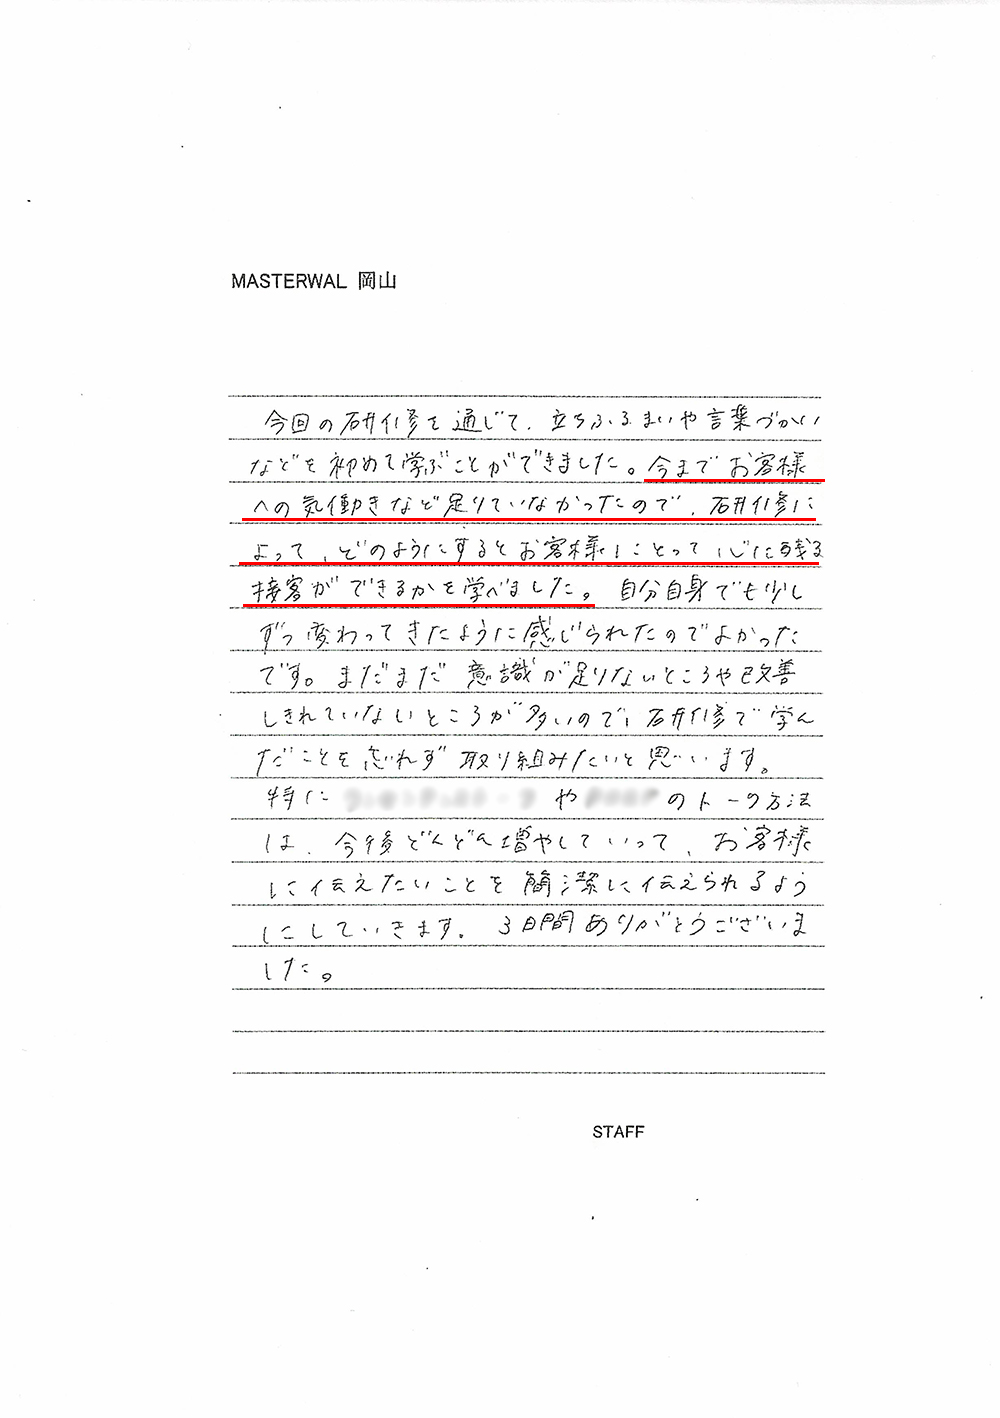 MASTERWAL 岡山
今回の研修を通じて、立ちふるまいや言葉づかい
などを初めて学ぶことができました。今までお客様
への気働きなど足りていなかったので、研修に
よって、どのようにするとお客様にとって心に残る
接客ができるかを学べました。自分自身でも少し
ずつ変わってきたように感じられたのでよかった
です。まだまだ意識が足りないところや改善
しきれていないところが多いので、研修で学ん
だことを忘れず取り組みたいと思います。
特に や のトーク方法
は、今後どんどん増やしていって、お客様
に伝えたいことを簡潔に伝えられるよう
にしていきます。3日間ありがとうございま
した。
STAFF